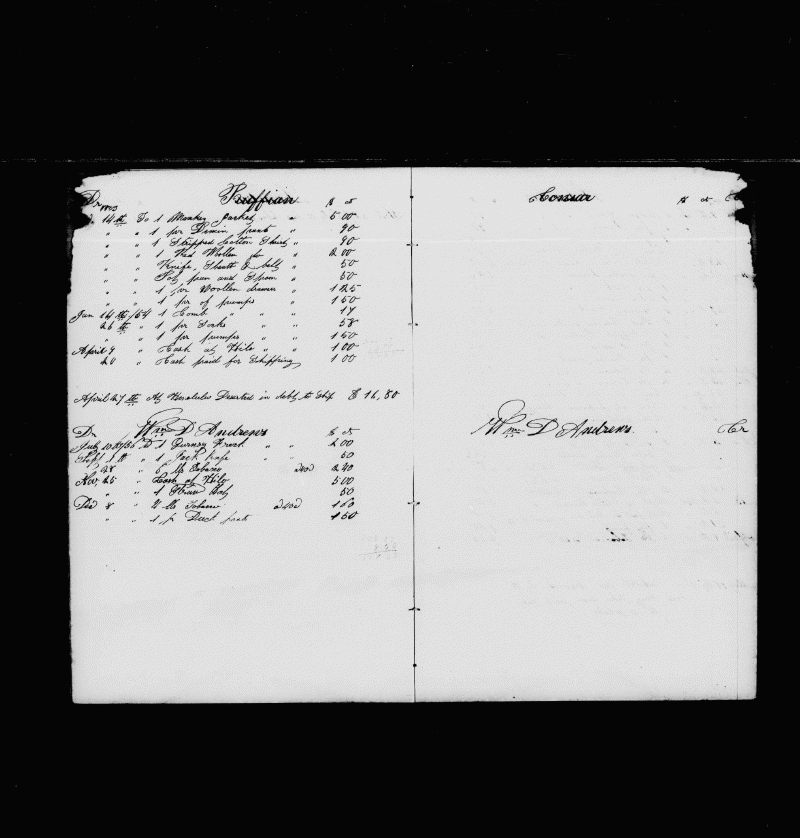 Dr Ruffian $ ct
14th To 1 Monkey Jacket " 5 00
" " 1 pr Denim pants " 90
" " 1 Stripped Cotton Shirt " 90
" " 1 Red Woollen do " 2 00
" " Knife, Sheath & belt " 50
" " Pot, pan and Spoon " 50
" " 1 pr Woollen drawers " 1 25
" " 1 pr of pumps " 1 50
Jan 14th /54 1 Comb " " " 17
26th " 1 pr Socks " " 58
" " 1 pr pumps " " 1 50
April 9 " Cash at Hilo " " 1 00
20 " Cash paid for Shipping 1 00
April 27th At Honolulu Deserted in debt to Ship $ 16,80
Dr Wm D Andrews $ ct
July 1 Gurnsy Frock " " 2 00
Sept " 1 " " 50
28 " lbs Tobacco 2 40
Nov 25 " Cash at Hilo 5 00
" " 1 Straw Hat 50
Dec 8 " lbs Tobacco
" " 1 pr Duck pants 1 50
Consar $ ct Cr
Wm D Andrews Cr